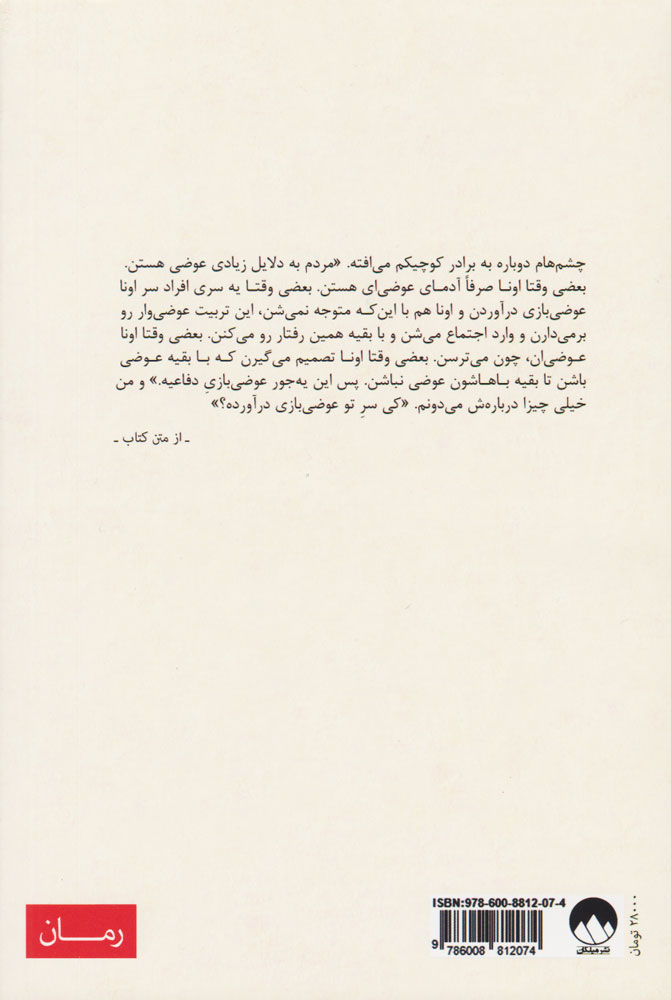 چشم‌هام دوباره به برادر کوچیکم می‌افته. «مردم به دلایل زیادی عوضی هستن.
بعضی وقتا اونا صرفاً آدمای عوضی‌ای هستن. بعضی وقتا یه سری افراد سر اونا
عوضی‌بازی درآوردن و اونا هم با این‌که متوجه نمی‌شن، این تربیت عوضی‌وار رو
برمی‌دارن و وارد اجتماع می‌شن و با بقیه همین رفتار رو می‌کنن. بعضی وقتا اونا
عوضی‌ان، چون می‌ترسن. بعضی وقتا اونا تصمیم می‌گیرن که با بقیه عوضی
باشن تا بقیه باهاشون عوضی نباشن. پس این یه‌جور عوضی‌بازیِ دفاعیه.» و من
خیلی چیزا درباره‌ش می‌دونم. «کی سرِ تو عوضی‌بازی درآورده؟»
ـ از متن کتاب ـ
رمــان
ISBN:978-600-8812-07-4
9 786008 812074
نشر میلکان
۲۸۰۰۰ تومان